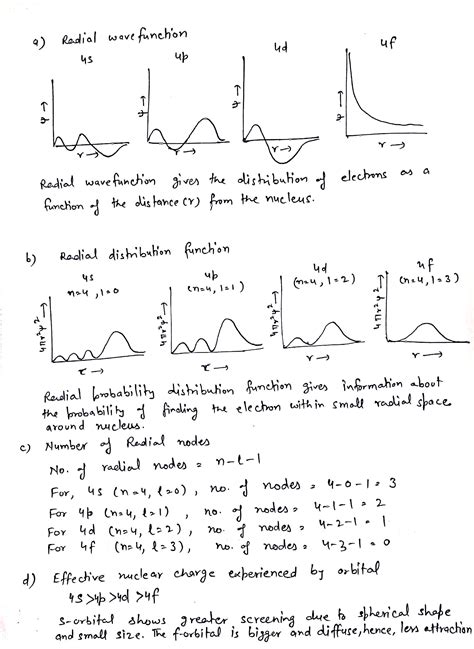 a) Radial wavefunction
4s 4p 4d 4f
ψ→ ψ→ ψ→ ψ→
r→ r→ r→ r→
Radial wavefunction gives the distribution of electrons as a
function of the distance (r) from the nucleus.
b) Radial distribution function
4s 4p 4d 4f
n=4, l=0 (n=4, l=1) (n=4, l=2) (n=4, l=3)
4πr²ψ²→ 4πr²ψ²→ 4πr²ψ²→ 4πr²ψ²→
r→ r→ r→ r→
Radial probability distribution function gives information about
the probability of finding the electron within small radial space
around nucleus.
c) Number of Radial nodes
No. of radial nodes = n-l-1
For, 4s (n=4, l=0), no. of nodes = 4-0-1 = 3
For 4p (n=4, l=1), no. of nodes = 4-1-1 = 2
For 4d (n=4, l=2), no. of nodes = 4-2-1 = 1
For 4f (n=4, l=3), no. of nodes = 4-3-1 = 0
d) Effective nuclear charge experienced by orbital
4s>4p>4d>4f
s-orbital shows greater screening due to spherical shape
and small size. The f-orbital is bigger and diffuse, hence, less attraction